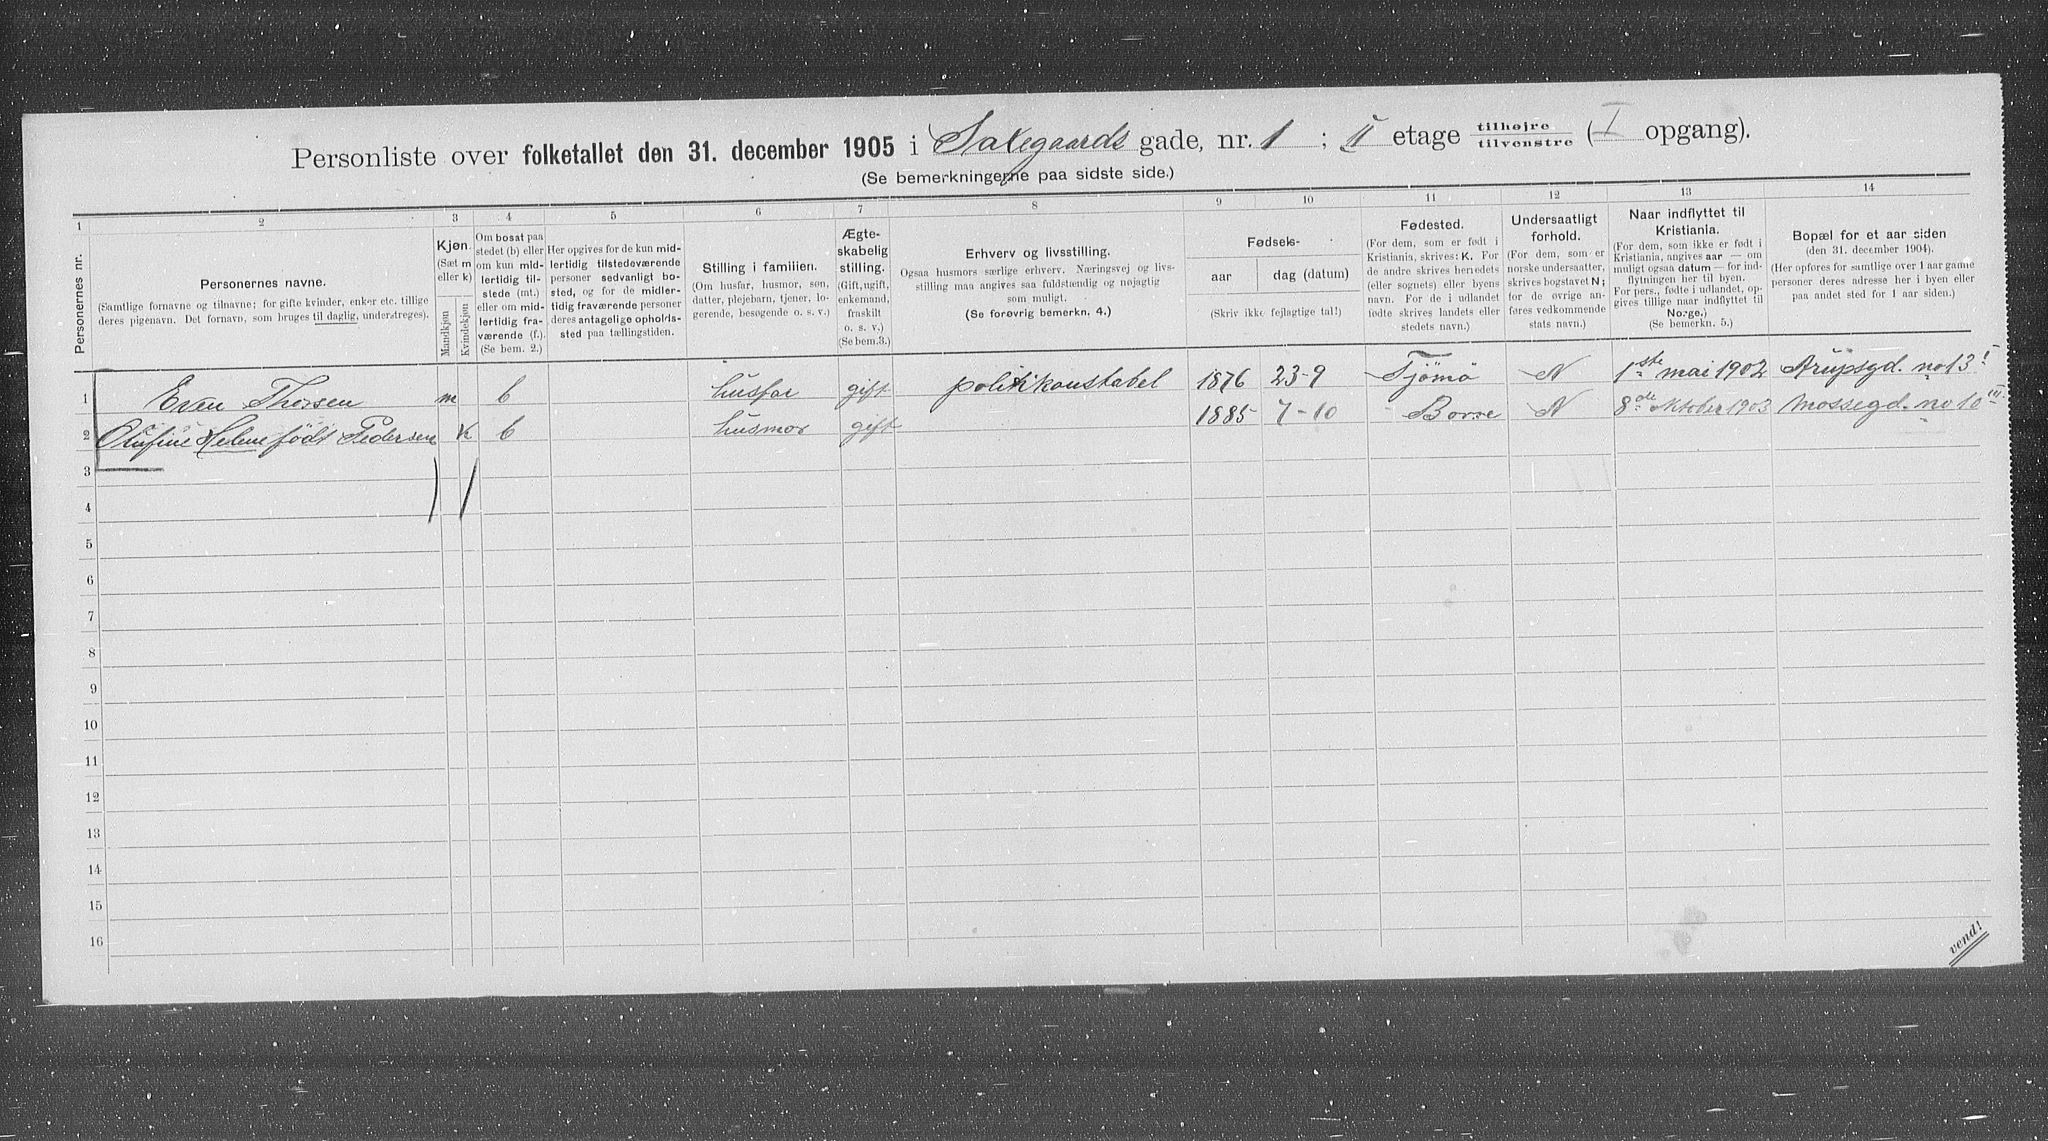 Personliste over folketallet den 31. december 1905 i Sakegaards gade, nr. 1 ; II etage tilhøjre tilvenstre (I opgang).
(Se bemerkningerne paa sidste side.)
1 2 3 4 5 6 7 8 9 10 11 12 13 14
Personernes nr.
Personernes navne.
(Samtlige fornavne og tilnavne; for gifte kvinder, enker etc. tillige
deres pigenavn. Det fornavn, som bruges til daglig, understreges).
Kjøn.
(Sæt m
eller k)
Mandkjøn
Kvindekjøn
Om bosat paa
stedet (b) eller
om kun mid-
lertidig til-
stede (mt.)
eller om mid-
lertidig fra-
værende (f.).
(Se bem. 2.)
Her opgives for de kun mid-
lertidig tilstedeværende
personer sedvanligt bo-
sted, og for de midler-
tidig fraværende personer
deres antagelige opholds-
sted paa tællingstiden.
Stilling i familien.
(Om husfar, husmor, søn,
datter, plejebarn, tjener, lo-
gerende, besøgende o. s. v.)
Ægte-
skabelig
stilling.
(Gift, ugift,
enkemand,
fraskilt
o. s. v.)
(Se bem.3.)
Erhverv og livsstilling.
Ogsaa husmors særlige erhverv. Næringsvej og livs-
stilling maa angives saa fuldstændig og nøjagtig
som muligt.
(Se forøvrig bemerkn. 4.)
Fødsels-
aar
dag (datum)
(Skriv ikke fejlagtige tal!)
Fødested.
(For dem, som er født i
Kristiania, skrives: K. For
de andre skrives herredets
(eller sognets) eller byens
navn. For de i udlandet
fødte skrives landets eller
stedets navn.)
Undersaatligt
forhold.
(For dem, som er
norske undersaatter,
skrives bogstavet N;
for de øvrige an-
føres vedkommende
stats navn.)
Naar indflyttet til
Kristiania.
(For dem, som ikke er født i
Kristiania, angives aar — om
muligt ogsaa datum — for ind-
flytningen her til byen.
For pers., fødte i udlandet, op-
gives tillige naar indflyttet til
Norge.)
(Se bemerkn. 5.)
Bopæl for et aar siden
(den 31. december 1904).
(Her opføres for samtlige over 1 aar gamle
personer deres adresse her i byen eller
paa andet sted for 1 aar siden.)
1 Even Thorsen m b husfar gift politikonstabel 1876 23-9 Tjömö N 1ste mai 1902 Arupsgd. no 13 I
2 Olufine Helene født Pedersen k b husmor gift 1885 7-10 Borre N 8de oktober 1903 Mossegd. no 10 III
3
4
5
6
7
8
9
10
11
12
13
14
15
16
vend!